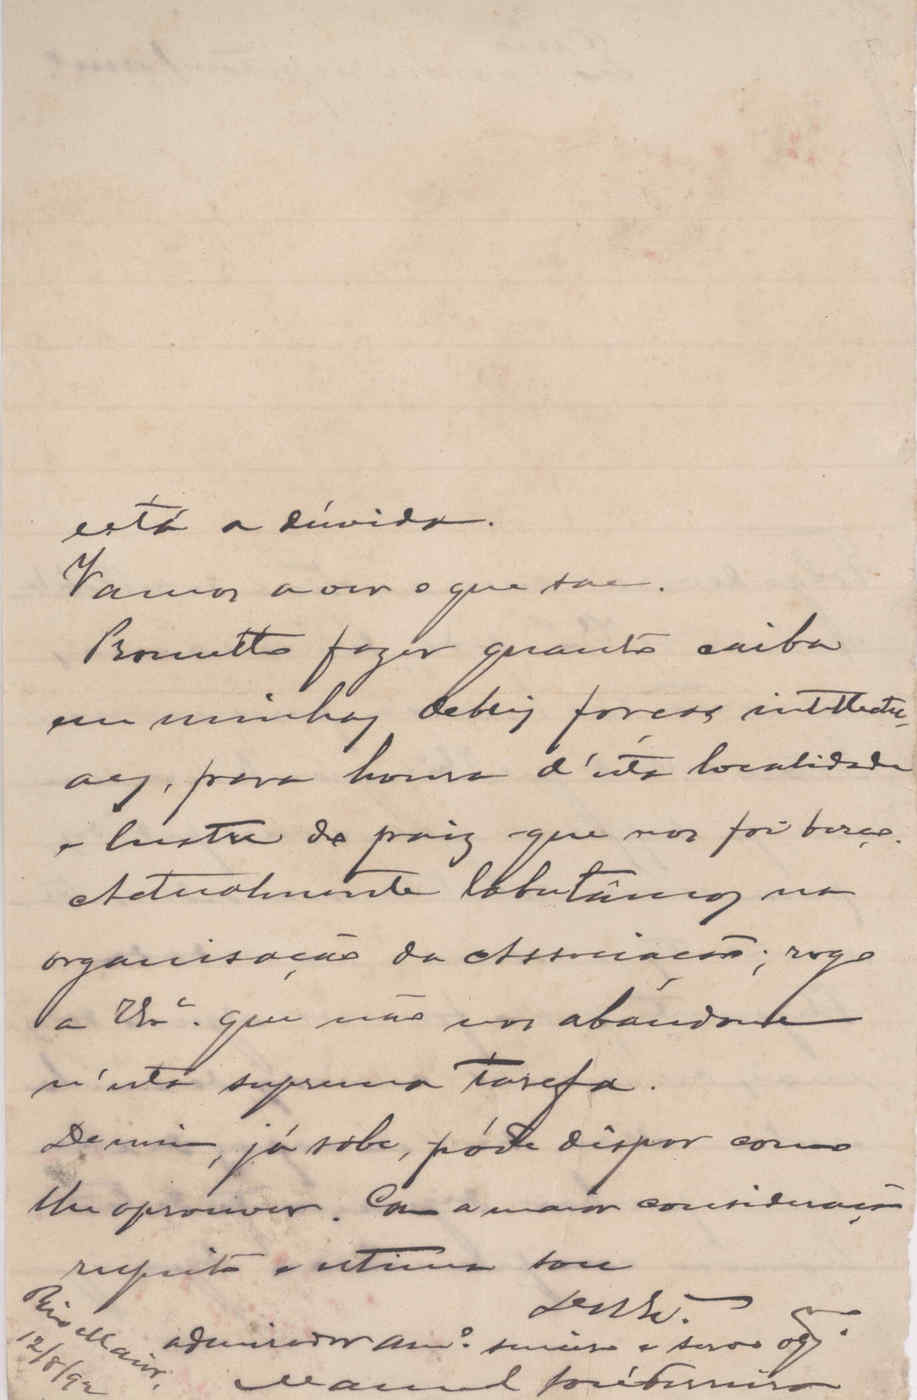 está a dúvida.
Vamos a ver o que sae.
Prometto fazer quanto caiba
em minhas debeis forças intellectu-
aes, para honra d'esta localidade
e lustre do paiz que nos foi berço.
Actualmente labutâmos na
organisação da Associação; rogo
a V. Sª. que não nos abandone
n'esta suprema tarefa.
De mim, já sabe, póde dispor como
lhe aprouver. Com a maior consideração
respeito e estima sou
De V. Sª.
admirador amº. sincero e servo obgº.
Manoel José Ferreira
Rio Maior,
12/8/92